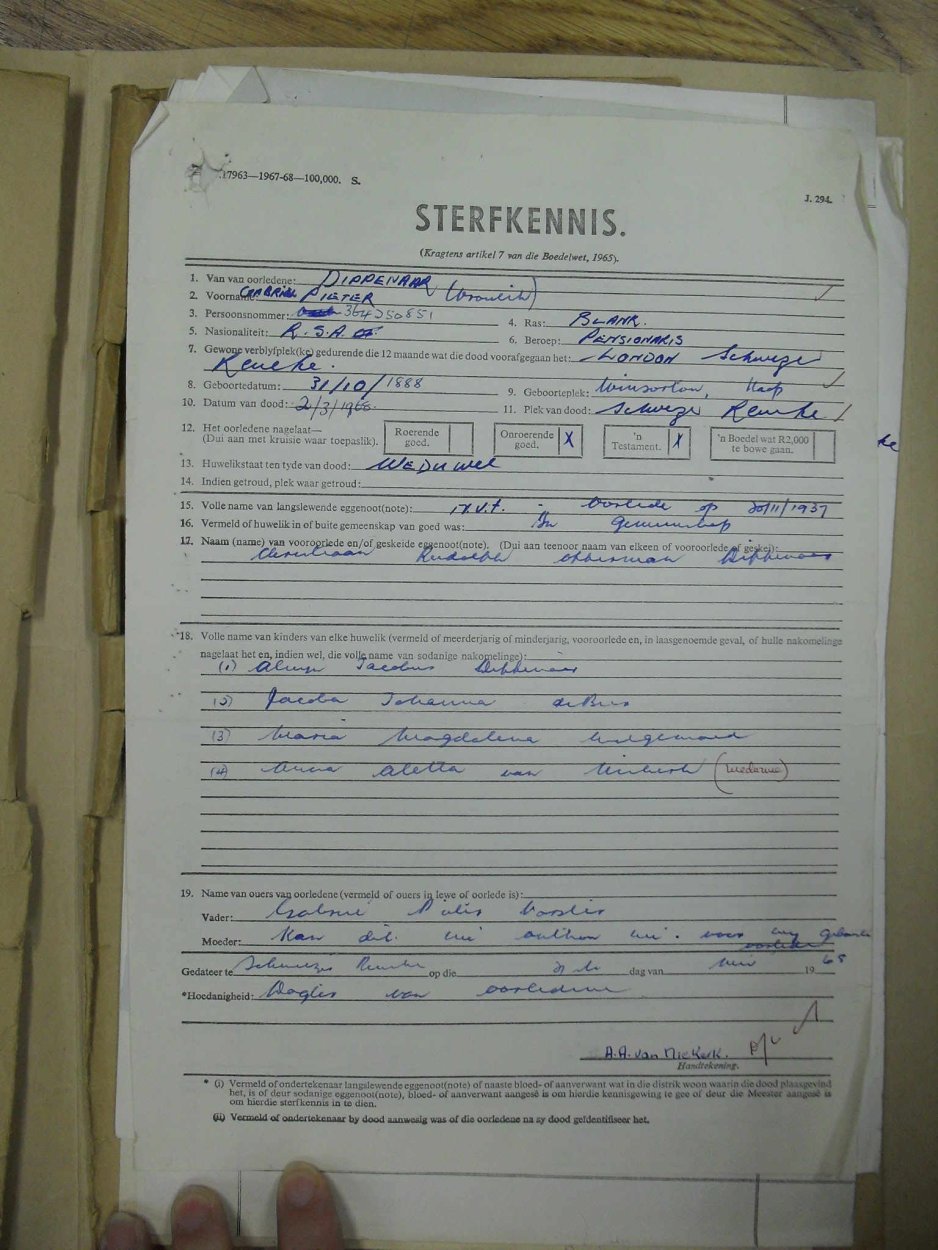 17963—1967-68—100,000. S.
J. 294.
STERFKENNIS.
(Kragtens artikel 7 van die Boedelwet, 1965).
1. Van van oorledene: DIPPENAAR
2. Voorname: GABRIEL PIETER (Vroulik)
3. Persoonsnommer: 364750851
4. Ras: BLANK.
5. Nasionaliteit: R.S.A.
6. Beroep: PENSIONARIS
7. Gewone verblyfplek(ke) gedurende die 12 maande wat die dood voorafgegaan het: LONDON Schweizer
Reneke.
8. Geboortedatum: 31/10/1888
9. Geboorteplek: Winsorton, Kaap
10. Datum van dood: 2/3/1968.
11. Plek van dood: Schweizer Reneke
12. Het oorledene nagelaat—
(Dui aan met kruisie waar toepaslik).
Roerende goed.
Onroerende goed. X
'n Testament. X
'n Boedel wat R2,000 te bowe gaan.
13. Huwelikstaat ten tyde van dood: WEDUWEE
14. Indien getroud, plek waar getroud:
15. Volle name van langslewende eggenoot(note): n.v.t. - Oorlede op 20/11/1937
16. Vermeld of huwelik in of buite gemeenskap van goed was: In Gemeenskap
17. Naam (name) van vooroorlede en/of geskeide eggenoot(note). (Dui aan teenoor naam van elkeen of vooroorlede of geskei):
Christiaan Rudolph Opperman Dippenaar
18. Volle name van kinders van elke huwelik (vermeld of meerderjarig of minderjarig, vooroorlede en, in laasgenoemde geval, of hulle nakomelinge
nagelaat het en, indien wel, die volle name van sodanige nakomelinge):
(1) Alwyn Jacobus Dippenaar
(2) Jacoba Johanna de Bruin
(3) Maria Magdalena
(4) Anna Aletta van Niekerk
19. Name van ouers van oorledene (vermeld of ouers in lewe of oorlede is):
Vader: Gabriel Vorster
Moeder: Kan dit nie onthou nie. voor my geboorte
oorlede
Gedateer te Schweizer Reneke op die dag van Mei 1968
*Hoedanigheid: Dogter van oorledene
A.A. van Niekerk.
Handtekening.
* (i) Vermeld of ondertekenaar langslewende eggenoot(note) of naaste bloed- of aanverwant wat in die distrik woon waarin die dood plaasgevind
het, is of deur sodanige eggenoot(note), bloed- of aanverwant aangesê is om hierdie kennisgewing te gee of deur die Meester aangesê is
om hierdie sterfkennis in te dien.
(ii) Vermeld of ondertekenaar by dood aanwesig was of die oorledene na sy dood geïdentifiseer het.